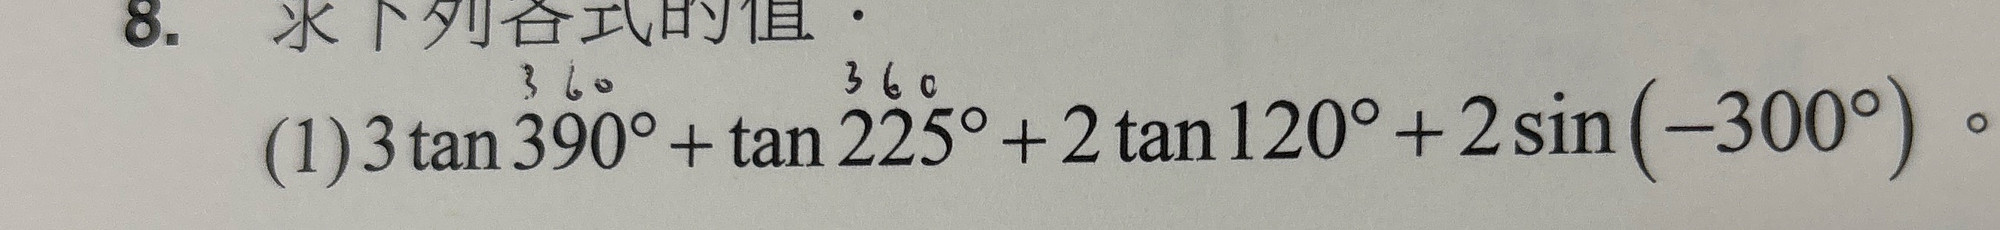 8. 求下列各式的值：
360 360
(1) 3 tan 390° + tan 225° + 2 tan 120° + 2 sin(−300°)。